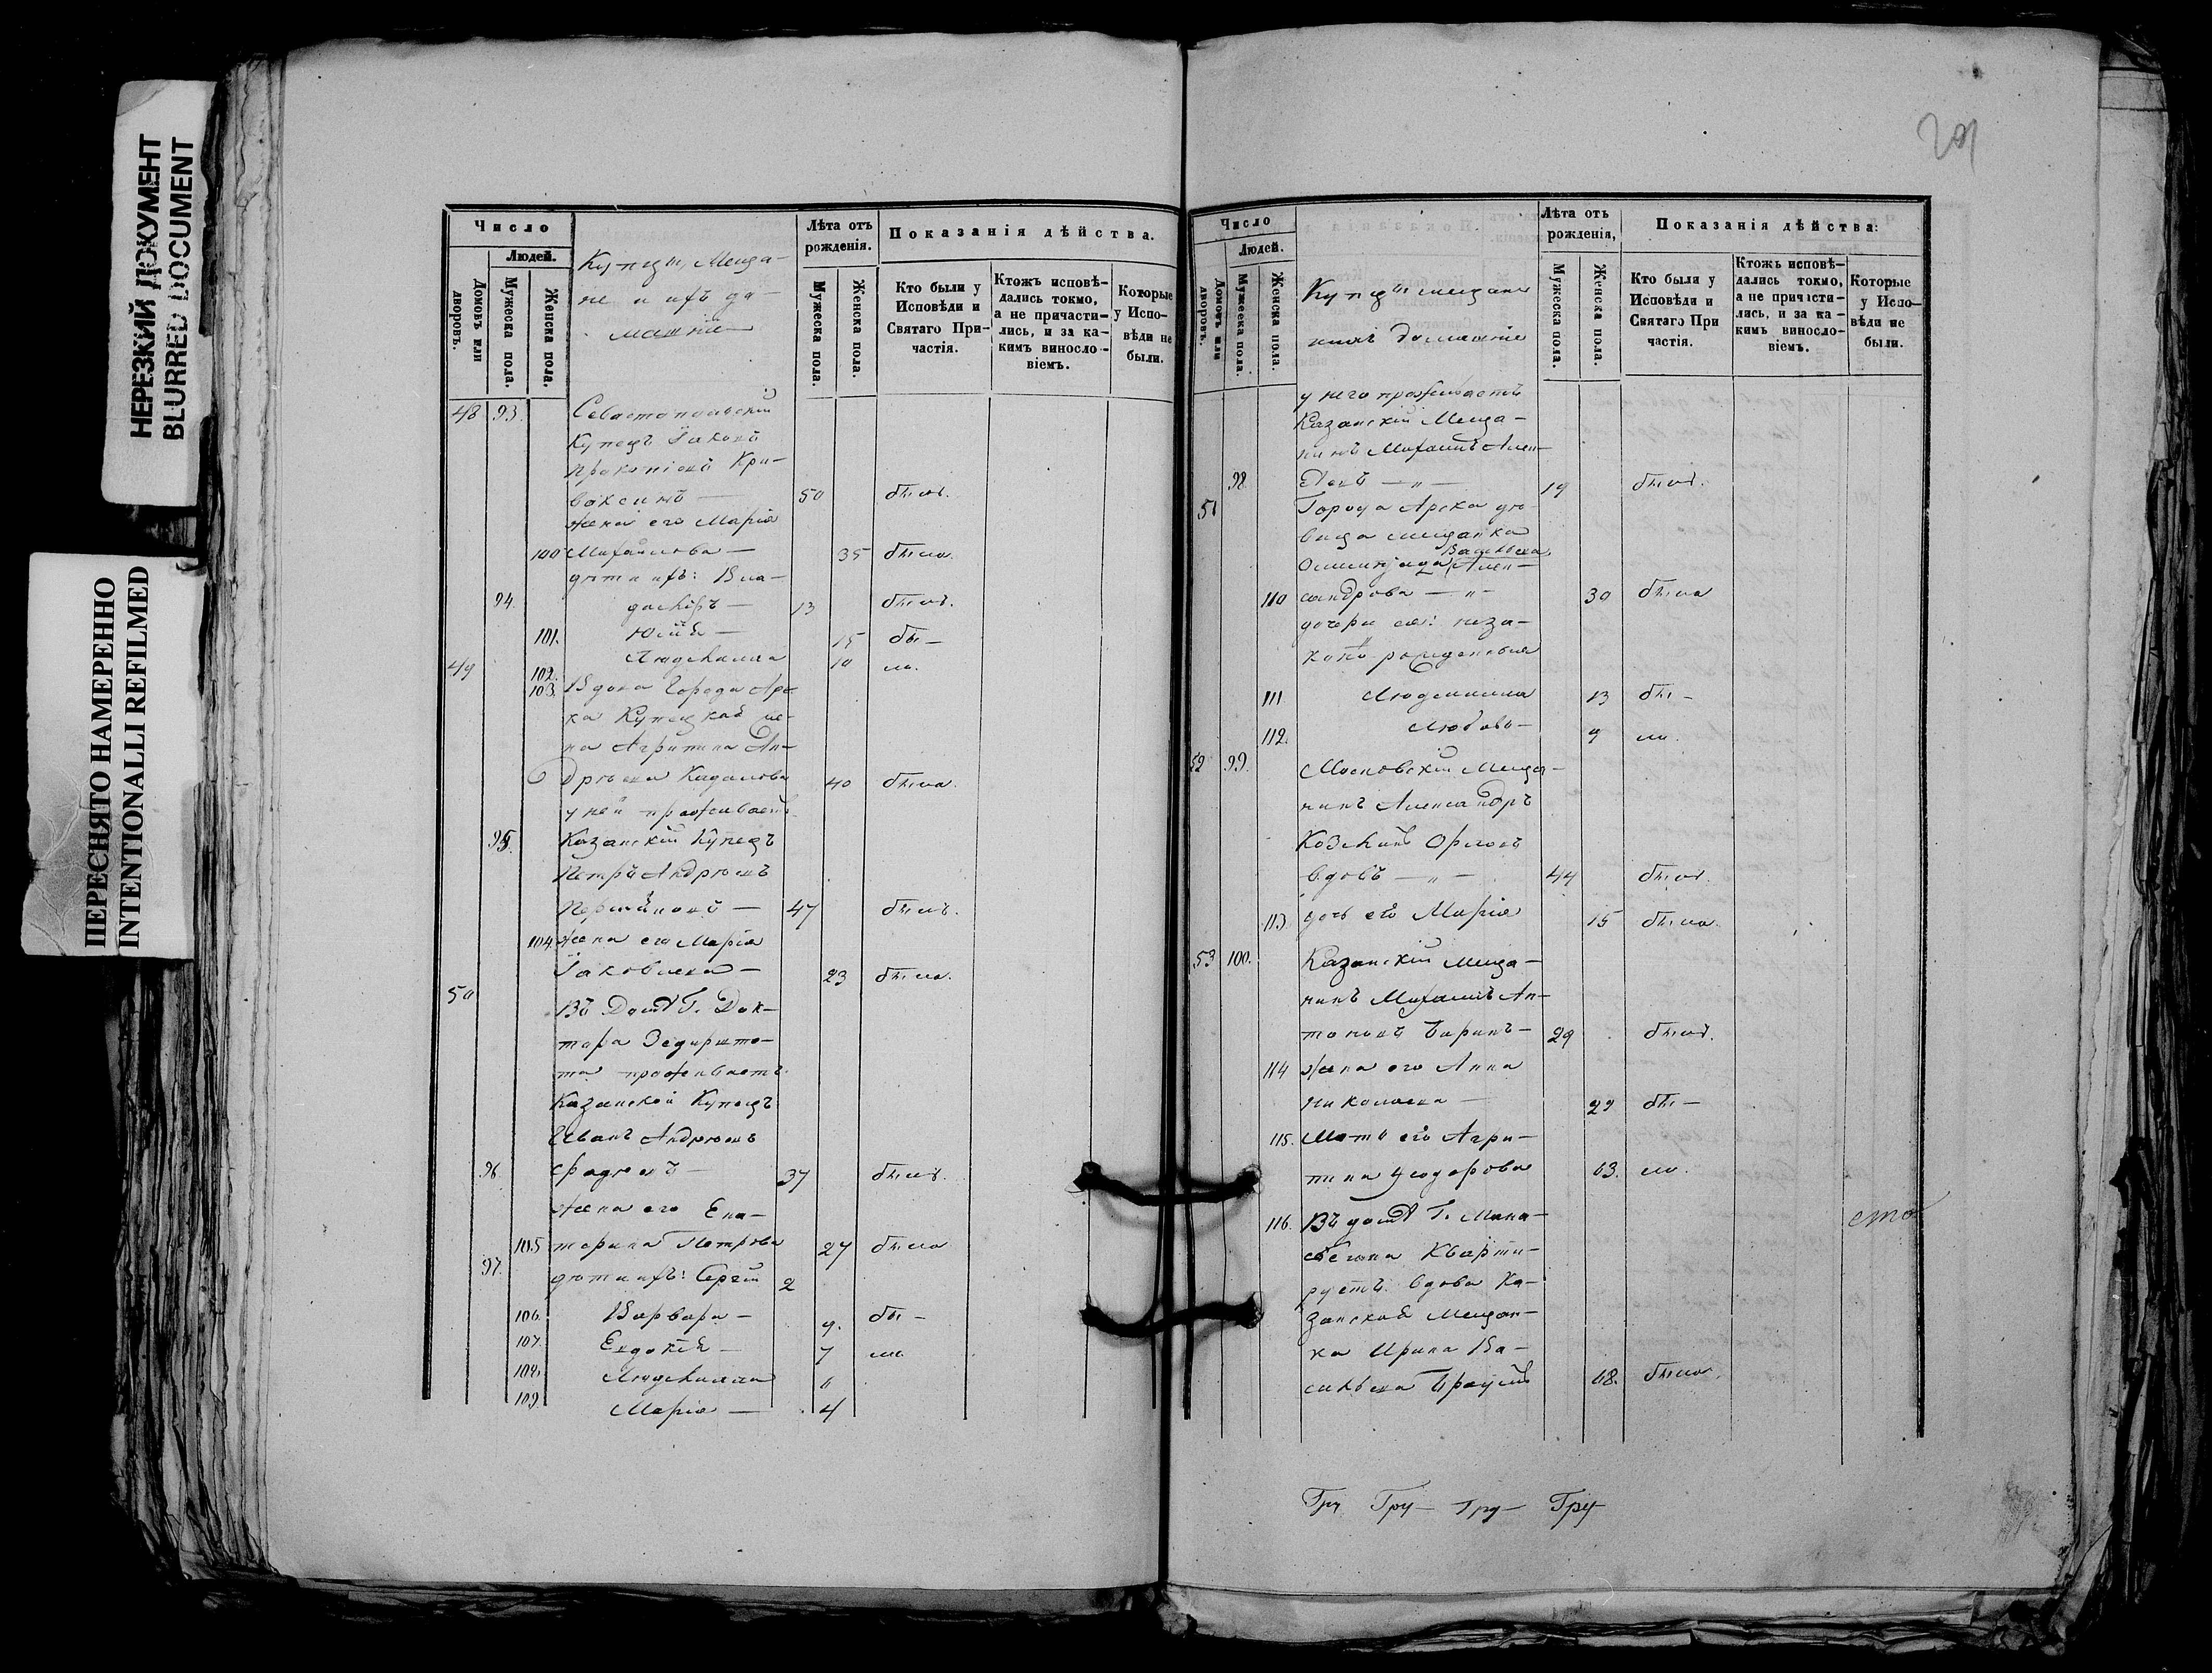 НЕРЕЗКИЙ ДОКУМЕНТ
BLURRED DOCUMENT
ПЕРЕСНЯТО НАМЕРЕННО
INTENTIONALLI REFILMED
Число
Людей.
Домовъ или дворовъ.
Мужеска пола.
Женска пола.
Купцы, Меща-
не и ихъ до-
машніе
Лѣта отъ рожденія.
Мужеска пола.
Женска пола.
Показанія дѣйства.
Кто были у Исповѣди и Святаго При-частія.
Ктожъ исповѣ-дались токмо, а не причасти-лись, и за ка-кимъ винословіемъ.
Которые у Испо-вѣди не были.
48 93. Севастопольскій
Купецъ Іаковъ
Прокопіевъ Кри-
воксинъ — 50 былъ.
жена его Марія
100 Михаилова — 35 была.
дѣти ихъ: Вла-
94. диміръ — 13 былъ.
101. Юлія — 15 бы —
102. Людмила 10 ла.
49 103. Вдова Города Арс-
ка Купецкая же-
на Агрипина Ан-
дрѣева 40 была.
у ней проживаетъ
95. Казанскій Купецъ
Петръ Андрѣевъ
— 47 былъ.
104. жена его Марія
Іаковлева — 23 была.
50 Въ Домѣ Г. Док-
тора
та проживаетъ
Казанской Купецъ
Иванъ Андрѣевъ
96. Фадѣевъ — 37 былъ.
жена его Ека-
105 терина Петрова 27 была
97. дѣти ихъ: Сергій 2
106. Варвара — 9. бы —
107. Евдокія — 7 ла
108. Людмила 6
109. Марія — 4
201
Число
Людей.
Домовъ или дворовъ.
Мужеска пола.
Женска пола.
Купцы мещане
ихъ домашніе
Лѣта отъ рожденія,
Мужеска пола.
Женска пола.
Показанія дѣйства:
Кто были у Исповѣди и Святаго При частія.
Ктожъ исповѣ-дались токмо, а не причасти-лись, и за ка-кимъ винословіемъ.
Которые у Испо-вѣди не были.
у него проживаетъ
Казанскій Меща-
нинъ Михаилъ Алек-
98. 19 былъ.
51 Города Арска дѣ-
вица мещанка
Васильева
Алек-
110 сандрова — „ — 30 была
дочери ея: неза-
конорожденныя
111 Людмила 13 бы —
112. Любовь — 9 ла.
52 99. Московскій Меща-
нинъ Александръ
Козминъ Орловъ
вдовъ — „ — 44 былъ.
113. дочь его Марія 15 была.
53 100. Казанскій Меща-
нинъ Михаилъ Ан-
тоновъ Баринъ — 29 былъ.
114 жена его Анна
Николаева — 29 бы —
115. Мать его Агри-
пина Ѳеодорова 63. ла.
116. Въ домѣ Г. Мана-
Кварти-
руетъ вдова Ка-
занская Мещан-
ка Ирина Ва-
сильева 68. была.
Гру Гру — Гру — Гру —